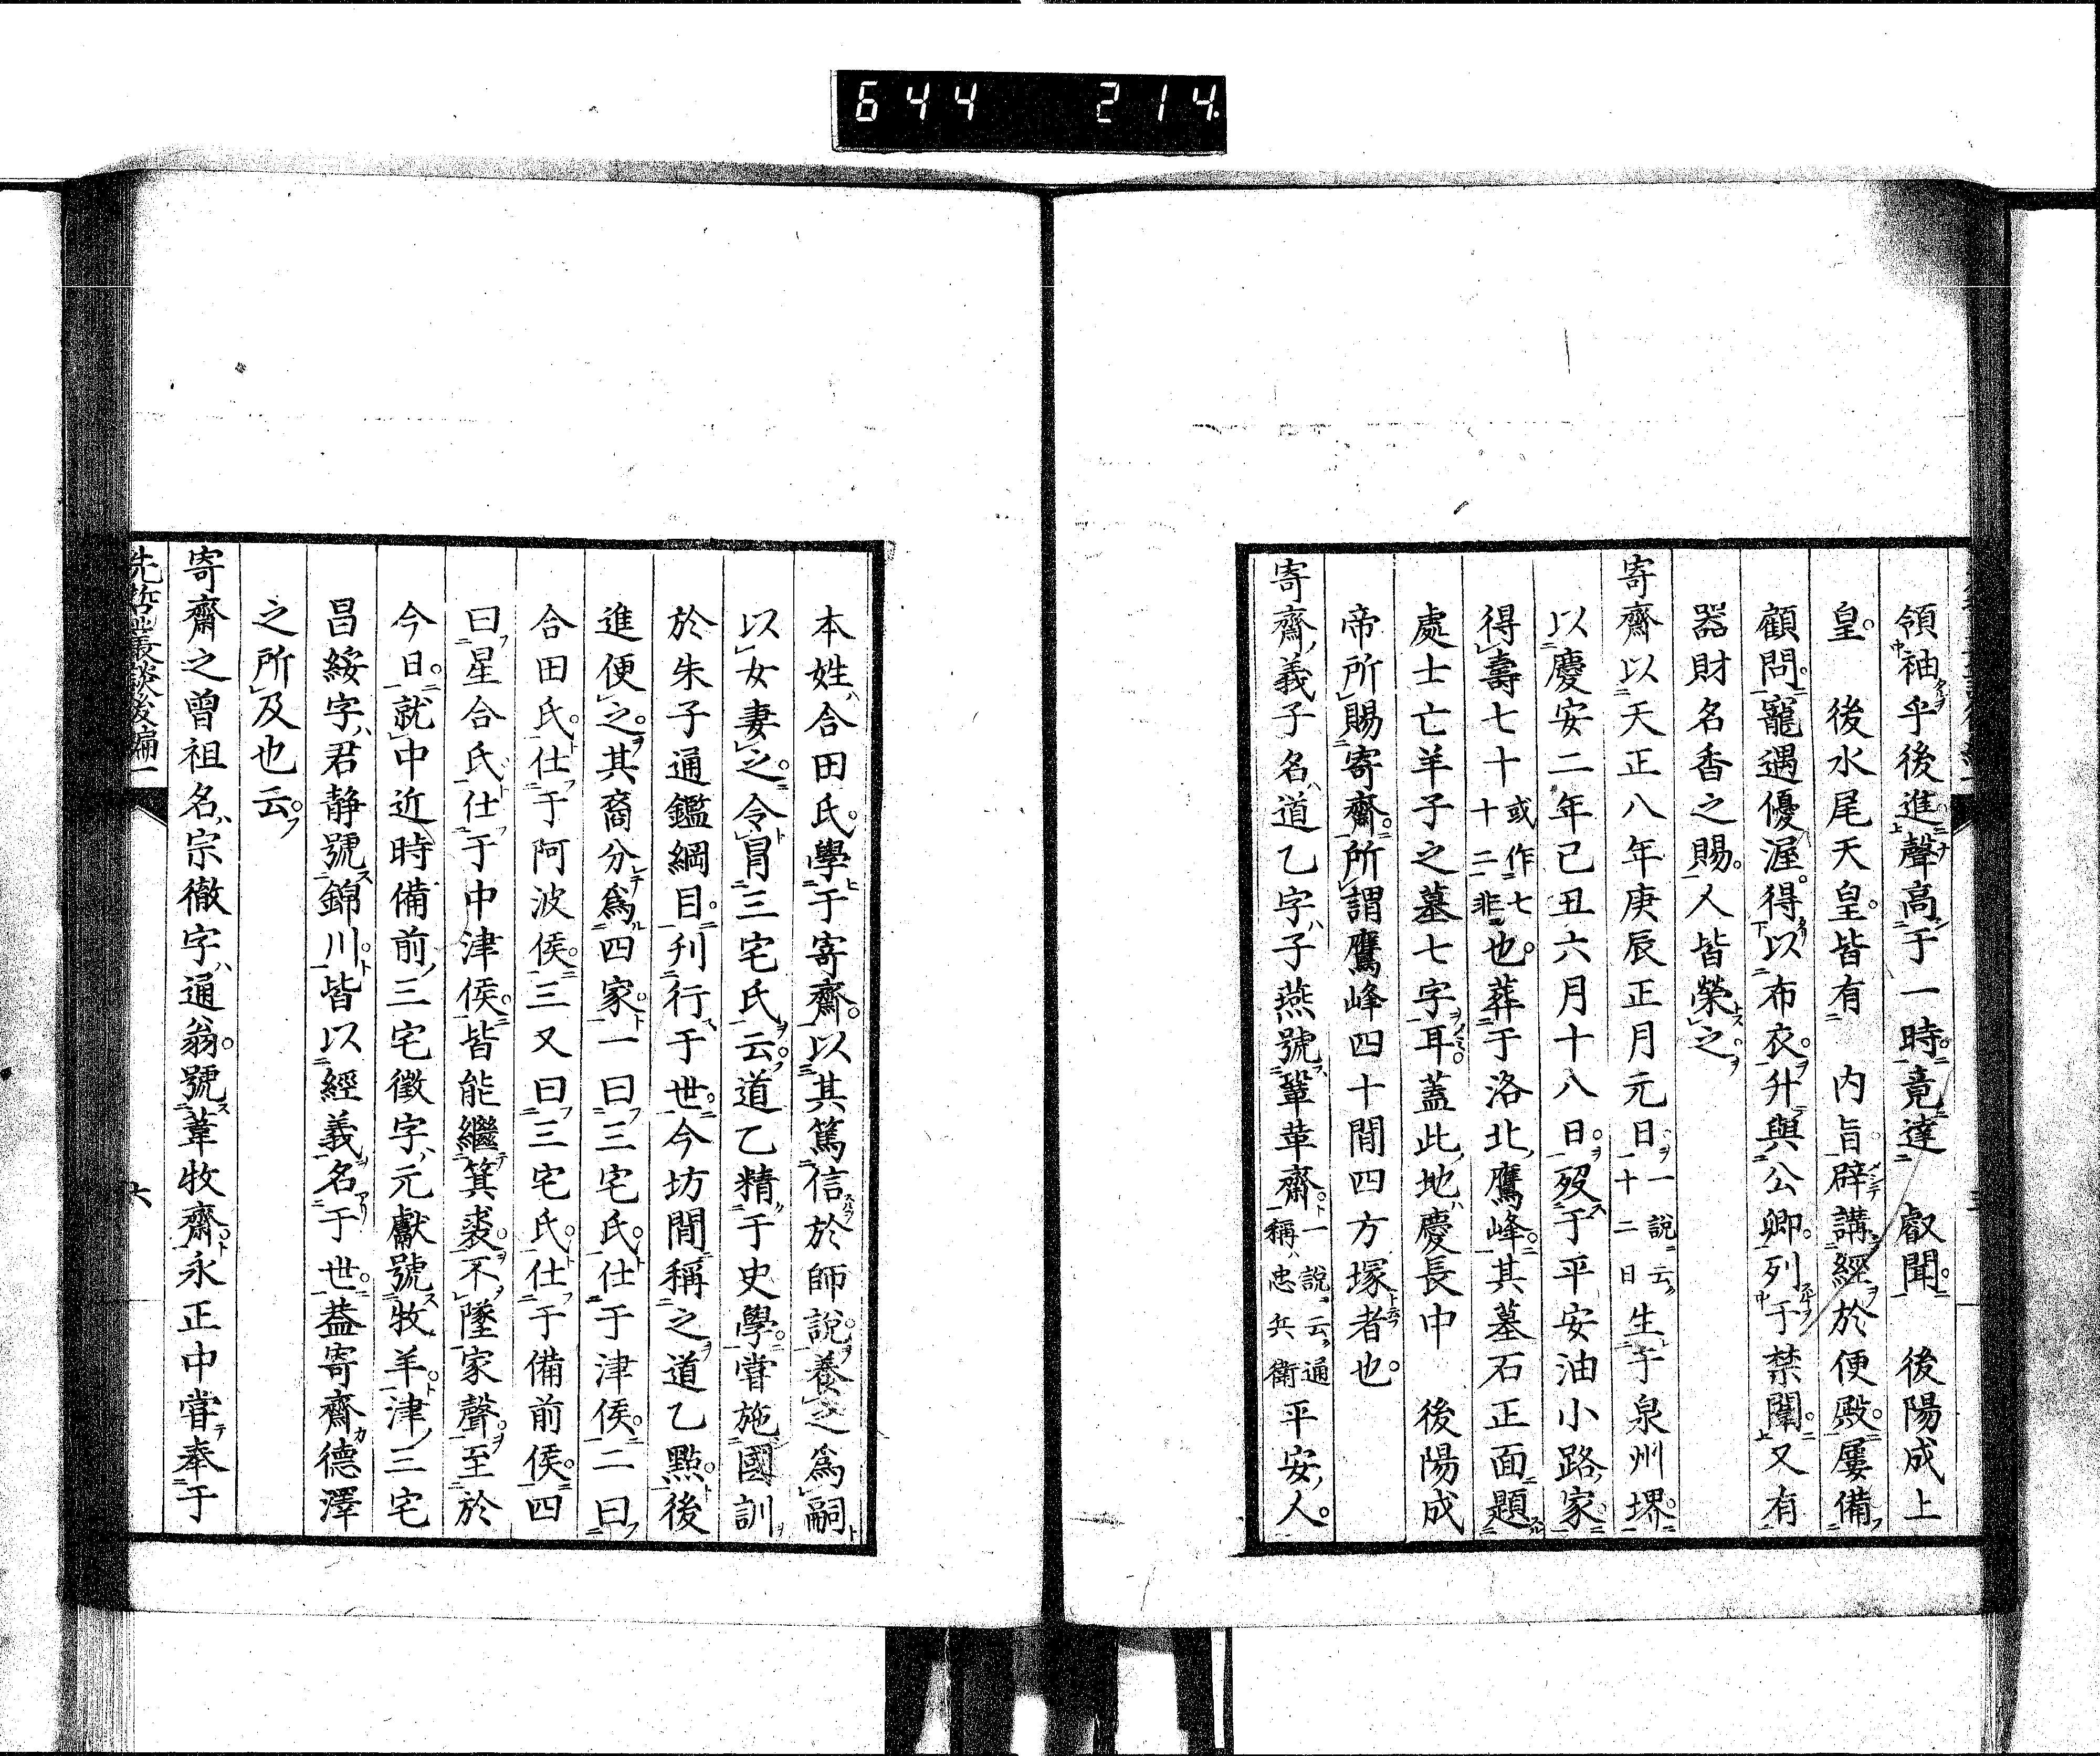 644 214.
領袖乎後進聲高于一時竟達 叡聞 後陽成上
皇 後水尾天皇皆有 内旨辟講經於便殿屢備
顧問寵遇優渥得以布衣升與公卿列于禁闥又有
器財名香之賜人皆榮之
寄齋以天正八年庚辰正月元日一說云十二日生于泉州堺
以慶安二年己丑六月十八日歿于平安油小路家
得壽七十或作七十二非也葬于洛北鷹峰其墓石正面題
處士亡羊子之墓七字耳蓋此地慶長中 後陽成
帝所賜寄齋所謂鷹峰四十間四方塚者也
寄齋義子名道乙字子燕號鞏革齋一說云通稱忠兵衛平安人
本姓合田氏學于寄齋以其篤信於師說養之爲嗣
以女妻之令冐三宅氏云道乙精于史學嘗施國訓
於朱子通鑑綱目刋行于世今坊間稱之道乙點後
進便之其裔分爲四家一曰三宅氏仕于津侯二曰
合田氏仕于阿波侯三又曰三宅氏仕于備前侯四
曰星合氏仕于中津侯皆能繼箕裘不墜家聲至於
今日就中近時備前三宅徵字元獻號牧羊津三宅
昌綏字君静號錦川皆以經義名于世葢寄齋德澤
之所及也云
寄齋之曽祖名宗徹字通翁號葦牧齋永正中嘗奉于
先哲叢談後編一 六